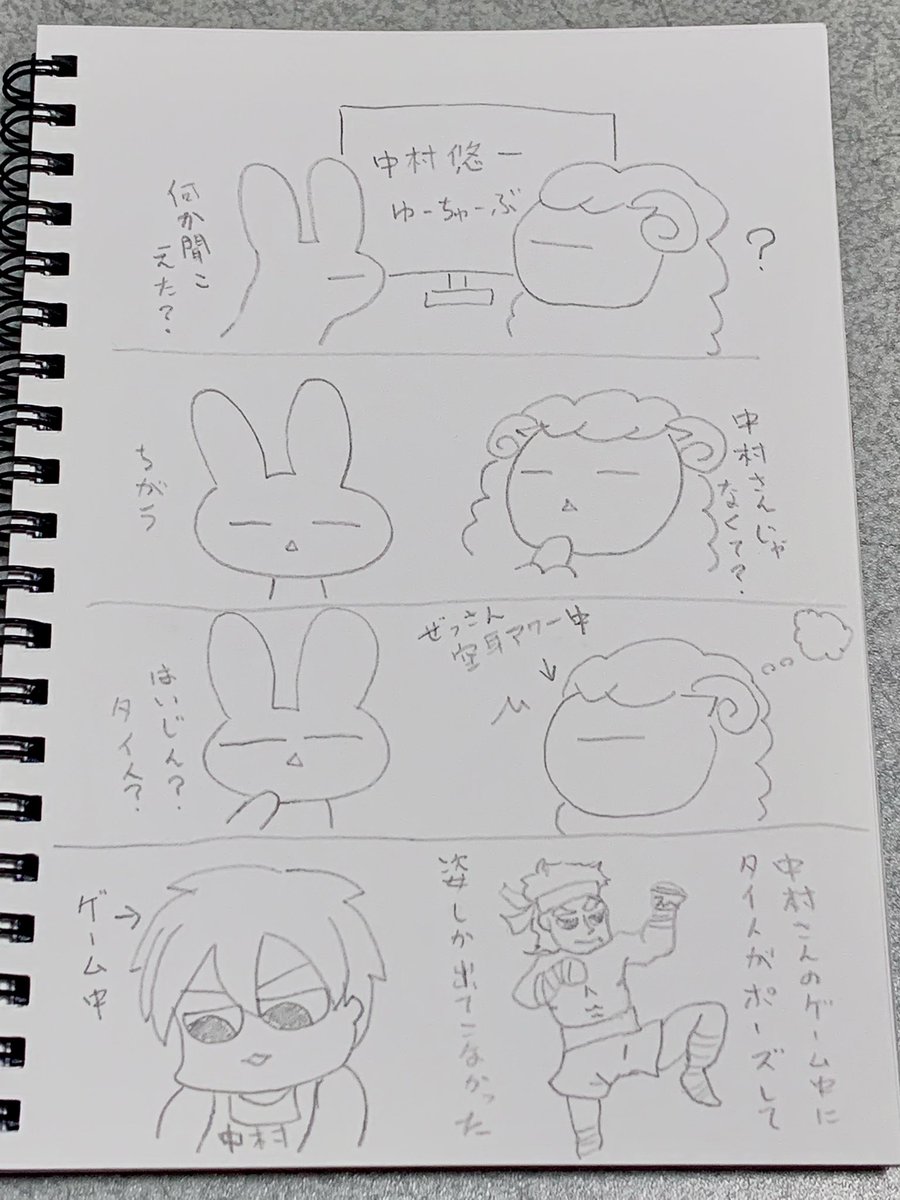 中村悠一
ゆーちゅーぶ
?
何か聞こ
えた?
中村さんじゃ
なくて?
ちがう
ぜっさん
空耳アワー中
はいじん?
タイ人?
中村さんのゲーム中に
タイ人がポーズして
姿しか出てこなかった
ゲーム中
中村